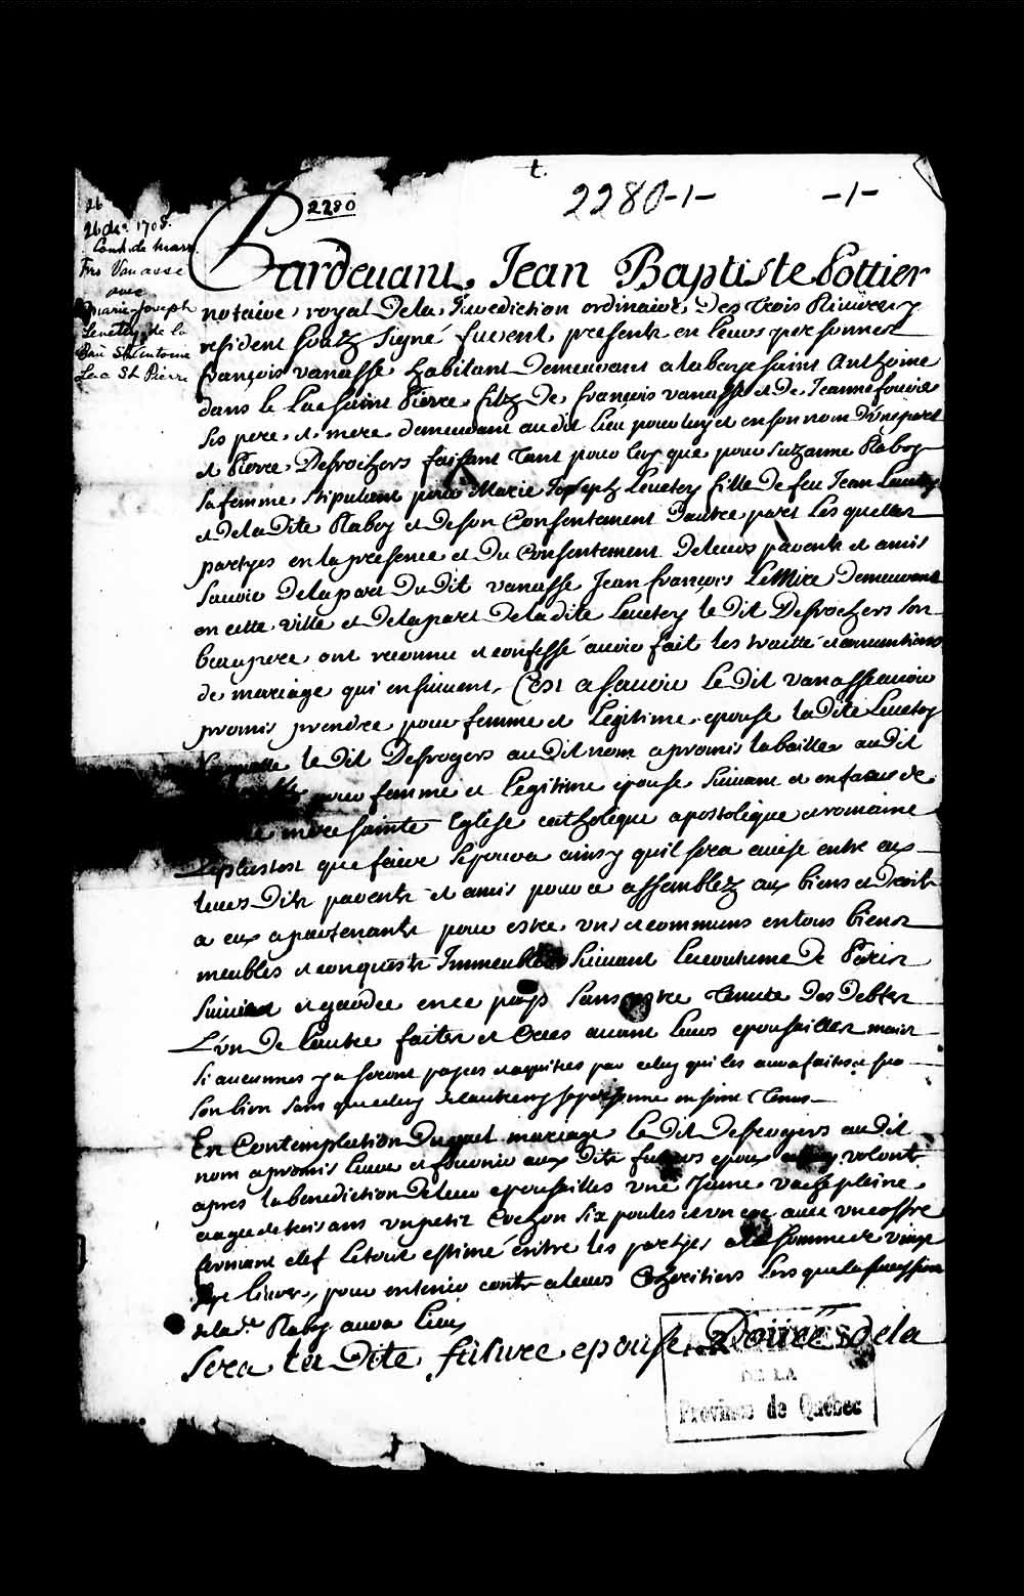 t.
2280-1- -1-
2280
26
26 Xbre 1708.
Cont. de mar.
Frs Vanasse
avec
Marie-Joseph
Leuctey de la
Baie St Antoine
Lac St Pierre
Pardevant Jean Baptiste Pottier
notaire royal Dela Jurediction ordinaire Des trois Rivieres
resident soubz signé furent presents en leurs personnes
françois vanasse habitant Demeurant a la baye saint Anthoine
dans le Lac saint Pierre filz De françois vanasse et De Jeanne fourier
ses pere et mere demeurant au dit lieu pour luy et en son nom D'une part
et Pierre Desrochers faisant tant pour luy que pour Suzanne Raboy
sa femme stipulant pour Marie Joseph Leuctey fille De feu Jean
et De la Dite Raboy et De son Consentement Dautre part Les quelles
partyes en la presence et Du Consentement De leurs parents et amis
Savoir De la part Du Dit vanasse Jean françois LeMire Demeurant
en cette ville et De la part De la dite Leuctey le Dit Desrochers son
beaupere ont reconnu et confessé avoir fait les traitté et conventions
de mariage qui ensuivent, C'est a savoir Le Dit vanasse avoir
promis prendre pour femme et Legitime epouse la Dite Leuctey
le Dit Desrogers au Dit nom a promis la bailler au Dit
pour femme et legitime epouse suivant et en face de
mere sainte Eglise catholique apostolique et romaine
Le plustost que faire se poura ainsy quil sera avisé entre eux
leurs Dits parents et amis pour ce assemblez aux biens et Droits
a eux apartenants pour estre uns et communs en tous biens
meubles et conquests Immeubles Suivant La coutume De Paris
suivie et gardée en ce pays sans estre tenus Des Debtes
L'un De Lautre faites et Crées avant leurs epousailles mais
si aucunnes y a seront payes et aquitées par celuy qui les aura faites et sur
son bien sans que celuy De lautre en soit tenus
En Contemplation Duquel mariage Le Dit Desrogers au Dit
nom a promis livrer et fournir aux Dits futurs epoux volonté
apres la benediction De leur epousailles une Jeune vache pleine
aagée de trois ans un petit Cochon six poules et un coc avec un coffre
fermant a clef Le tout estimé entre les partyes a la somme de vingt
livres, pour en tenir conte a leurs Cohéritiers Lors que la succession
de la de. Raboy aura lieu
Sera la Dite future epouse Doüée de la
DE LA
Province de Québec